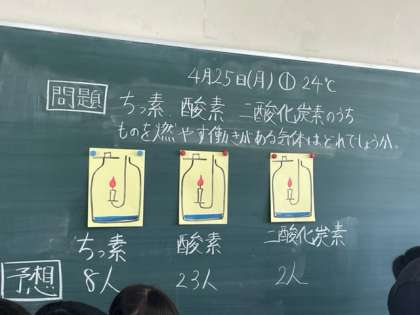 4月25日(月) ① 24℃
問題 ちっ素 酸素 二酸化炭素のうち
ものを燃やす働きがある気体はどれでしょうか。
ちっ素 酸素 二酸化炭素
予想 8人 23人 2人